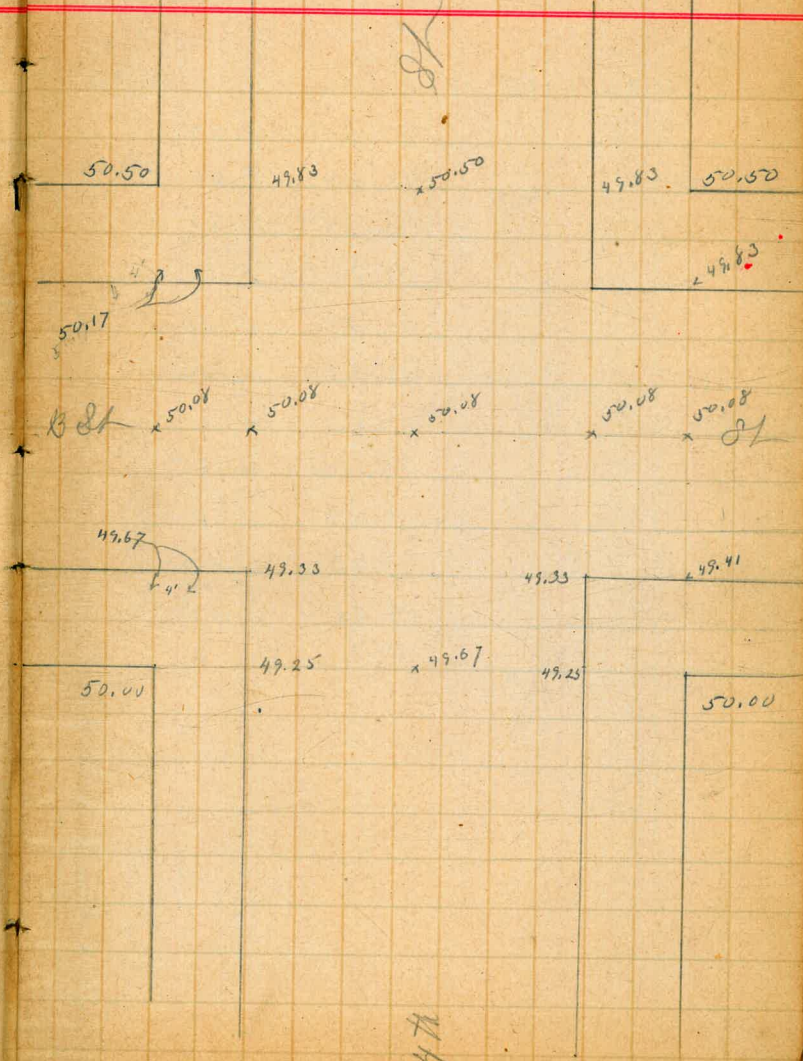 St
50.50 49.83 50.50 49.83 50.50
49.83
50.17
B St 50.08 50.08 50.08 50.08 50.08 St
49.67
4'
49.33 49.33 49.41
49.25 49.67 49.25
50.00 50.00
4th